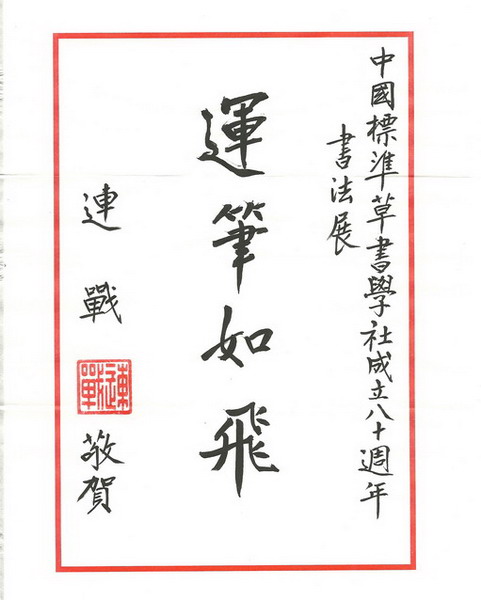 中國標準草書學社成立八十週年
書法展
運筆如飛
連戰
連戰
敬賀